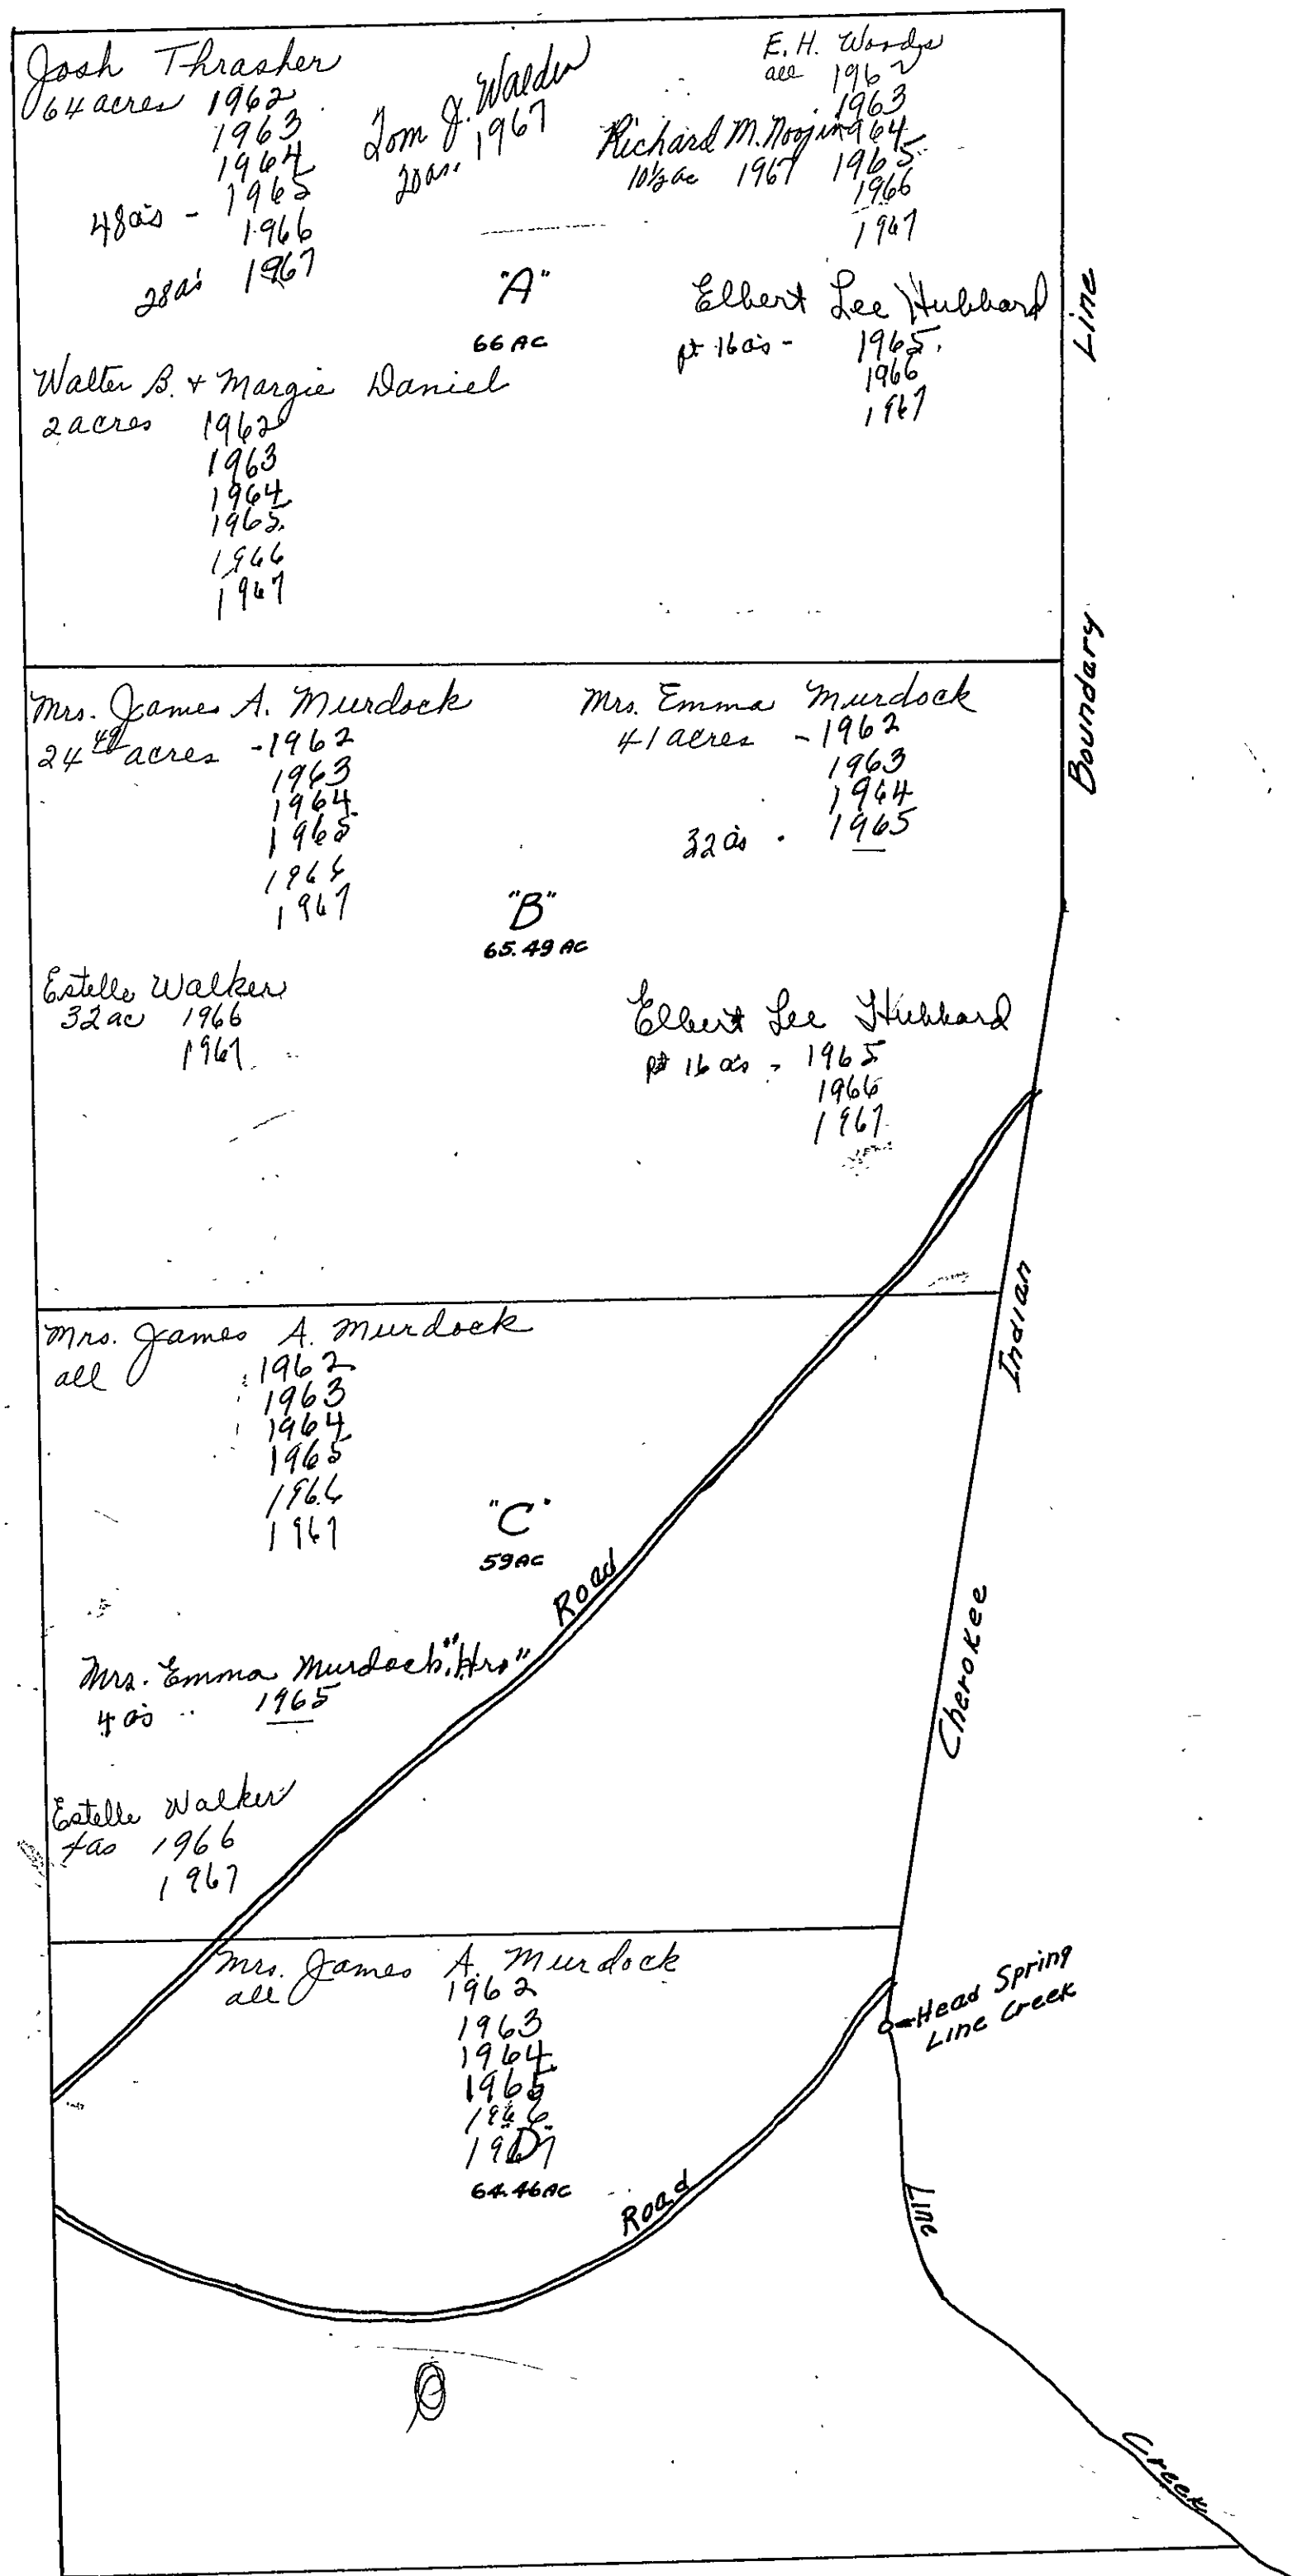 Josh Thrasher
64 acres 1962
1963
1964
48 a's - 1965
1966
28 a's 1967
Tom J. Walden
20 as. 1967
E. H. Woods
all 1962
1963
1964
1965
1966
1967
Richard M. Noojin
10½ ac 1967
"A"
66 AC
Elbert Lee Hubbard
pt 16 a's - 1965
1966
1967
Walter B. + Margie Daniel
2 acres 1962
1963
1964
1965
1966
1967
Mrs. James A. Murdock
24 49 acres - 1962
1963
1964
1965
1966
1967
Mrs. Emma Murdock
41 acres - 1962
1963
1964
32 a's . 1965
"B"
65.49 AC
Estelle Walker
32 ac 1966
1967
Elbert Lee Hubbard
pt 16 a's - 1965
1966
1967
Mrs. James A. Murdock
all 1962
1963
1964
1965
1966
1967
"C"
59 AC
Road
Mrs. Emma Murdock "Hrs"
4 a's 1965
Estelle Walker
4 as 1966
1967
Mrs. James A. Murdock
all 1962
1963
1964
1965
1966
1967
D
64.46 AC
Road
Cherokee Indian Boundary Line
Head Spring
Line Creek
Line Creek